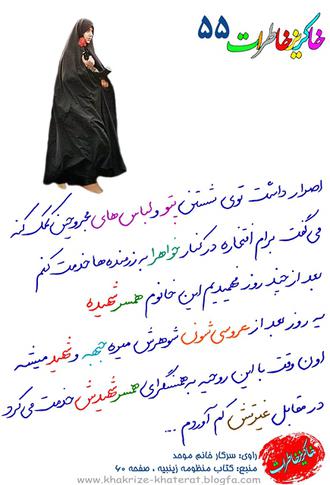 خاکریز خاطرات ۵۵
اصرار داشت توی شستن پتو و لباس‌های مجروحین کمک کنه
می‌گفت برام افتخاره در کنار خواهرا به رزمنده‌ها خدمت کنم
بعد از چند روز فهمیدیم این خانوم همسر شهیده
یه روز بعد از عروسی شون شوهرش میره جبهه و شهید میشه
اون وقت با این روحیه به همسنگرای همسر شهیدش خدمت می‌کرد
در مقابل غیرتش کم آوردم ...
خاکریز خاطرات
راوی: سرکار خانم موحد
منبع: کتاب منظومه زینبیه ، صفحه ۶۰
www.khakrize-khaterat.blogfa.com